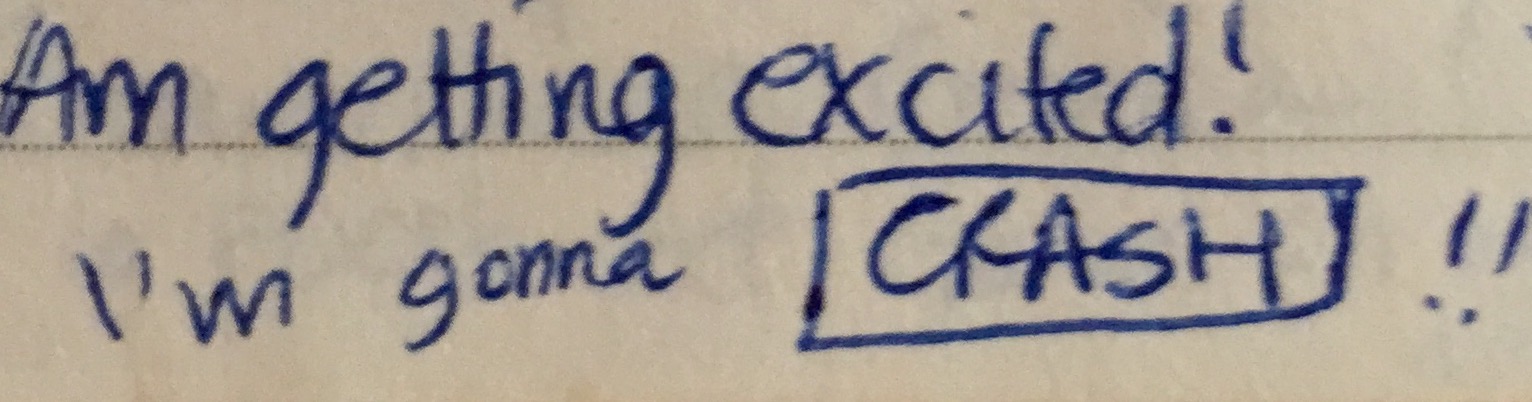 Am getting excited!
I'm gonna CRASH!!